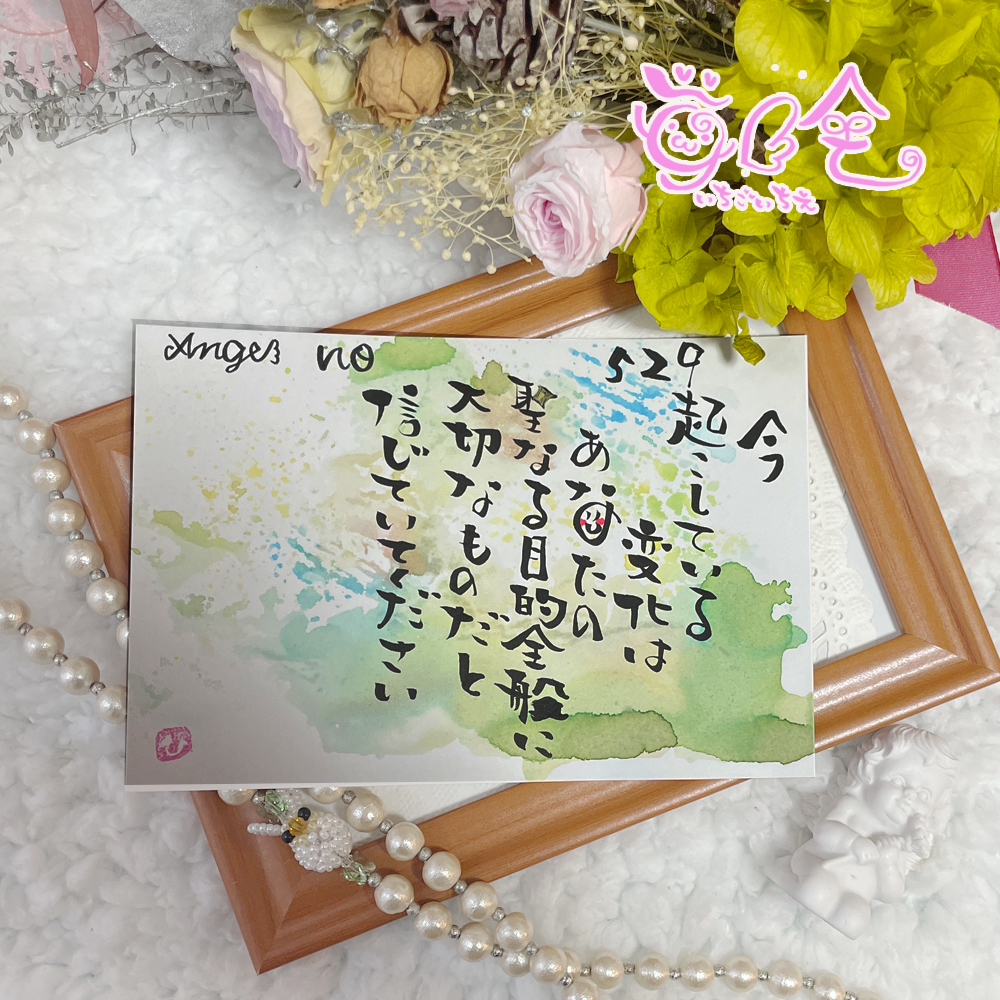 Angel no 529
今
起こしている
変化は
あなたの
聖なる目的全般に
大切なものだと
信じていてください
いちごいちえ